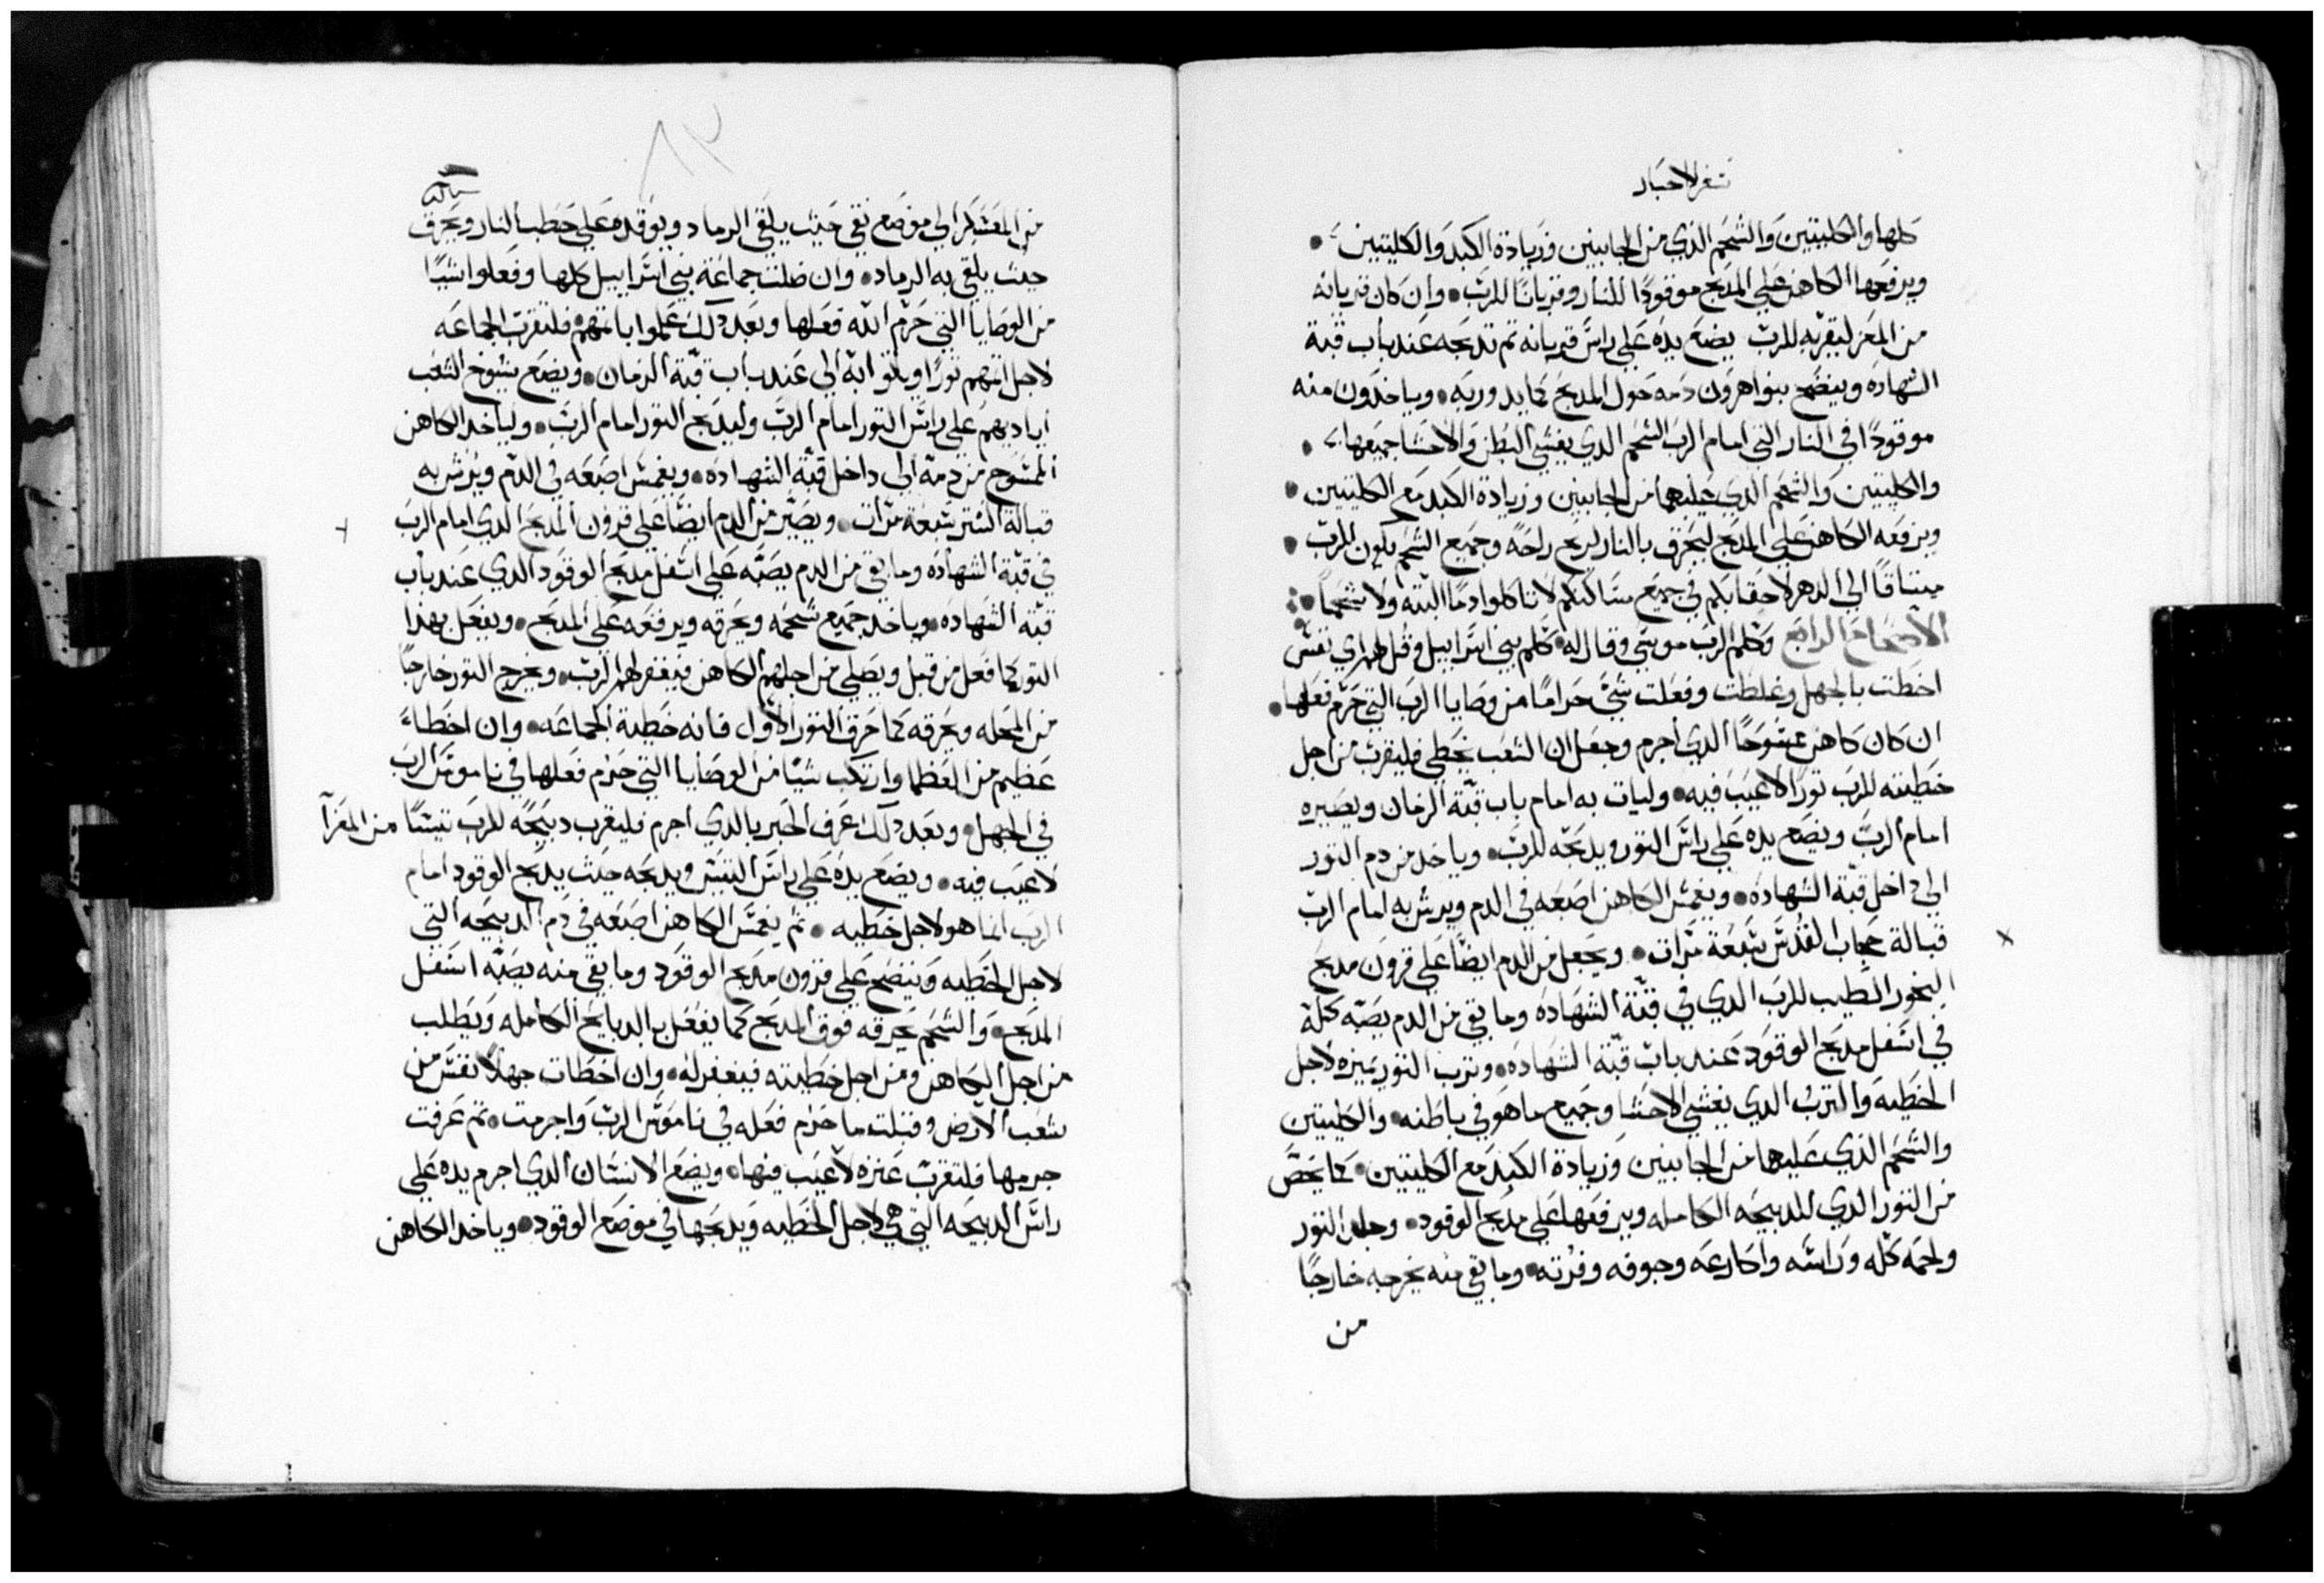 سفر الاحبار
كلها والكليتين والشحم الذي من الجانبين وزيادة الكبد والكليتين
ويرفعها الكاهن علي المدبح موقودًا للنار وقربانًا للرب وان كان قربانه
من المعز ليقربه للرب يضع يده علي راس قربانه تم تدبحه عند باب قبة
الشهاده وينضح بنوا هرون دمه حول المدبح كما يدور به وياخدون منه
موقودًا في النار التي امام الرب الشحم الدي يغشي البطن والاحشا جميعها
والكليتين والشحم الدي عليهما من الجانبين وزيادة الكبد مع الكليتين
ويرفعه الكاهن علي المدبح ليحرق بالنار لريح راحه وجميع الشحم يكون للرب
ميتاقًا الي الدهر لاحقابكم في جميع مساكنكم لا تاكلوا دمًا البته ولا شحمًا
الاصحاح الرابع وكلم الرب موسي وقال له كلم بني اسراييل وقل لهم اي نفس
اخطت بالجهل وغلطت وفعلت شيً حرامًا من وصايا الرب التي حرم فعلها
ان كان كاهن ممسوحًا الدي اجرم وجعل ان الشعب يخطي فليقرب من اجل
خطيته للرب تورًا لا عيب فيه وليات به امام باب قبة الزمان ويصيره
امام الرب ويضع يده علي راس التور ويدبحه للرب وياخد من دم التور
الي داخل قبة الشهاده ويغمس الكاهن اصبعه في الدم ويرش به امام الرب
قبالة حجاب القدس سبعة مرات ويجعل من الدم ايضًا علي قرون مدبح
البخور الطيب للرب الدي في قبة الشهاده وما بقي من الدم يصبه كله
في اسفل مدبح الوقود عند باب قبة الشهاده وترب التور يميزه لاجل
الخطيه والترب الدي يغشي الاحشا وجميع ما هو في باطنه والكليتين
والشحم الدي عليهما من الجانبين وزيادة الكبد مع الكليتين كما يخص
من التور الدي للدبيحه الكامله ويرفعها علي مدبح الوقود وجلد التور
ولحمه كله وراسه واكارعه وجوفه وفرته وما بقي منه يخرجه خارجًا
من
٨٢
من المعسكر الي موضع نقي حيت يلقي الرماد ويوقده علي حطب النار ويحرق
حيت يلقي به الرماد وان ضلت جماعة بني اسراييل كلها وفعلوا شيًا
من الوصايا التي حرم الله فعلها وبعد دلك علموا باتمهم فلتقرب الجماعه
لاجل اتمهم تورًا وياتوا به الي عند باب قبة الزمان ويضع شيوخ الشعب
اياديهم علي راس التور امام الرب وليدبح التور امام الرب ولياخد الكاهن
الممسوح من دمه الي داخل قبة الشهاده ويغمس اصبعه في الدم ويرش به
قبالة الستر سبعة مرات ويصير من الدم ايضًا علي قرون المدبح الدي امام الرب
في قبة الشهاده وما بقي من الدم يصبه علي اسفل مدبح الوقود الدي عند باب
قبة الشهاده وياخد جميع شحمه ويحرقه ويرفعه علي المدبح ويفعل بهدا
التور كما فعل من قبل ويصلي من اجلهم الكاهن فيغفر لهم الرب ويخرج التور خارجًا
من المحله ويحرقه كما حرق التور الاول فانه خطية الجماعه وان اخطاء
عظيم من العظما وارتكب شيًا من الوصايا التي حرم فعلها في ناموس الرب
في الجهل وبعد دلك عرف الخبر بالدي اجرم فليقرب دبيحًه للرب تيسًا من المعز
لا عيب فيه ويضع يده علي راس التيس ويدبحه حيت يدبح الوقود امام
الرب انما هو لاجل خطيه تم يغمس الكاهن اصبعه في دم الدبيحه التي
لاجل الخطيه وينضح علي قرون مدبح الوقود وما بقي منه يصبه اسفل
المدبح والشحم يحرقه فوق المدبح كما يفعل بالدبايح الكامله ويطلب
من اجل الكاهن ومن اجل خطيته فيغفر له وان اخطات جهلًا نفس من
شعب الارض وقبلت ما حرم فعله في ناموس الرب واجرمت تم عرفت
جرمها فلتقرب عنزه لا عيب فيها ويضع الانسان الدي اجرم يده علي
راس الدبيحه التي هي لاجل الخطيه ويدبحها في موضع الوقود وياخد الكاهن